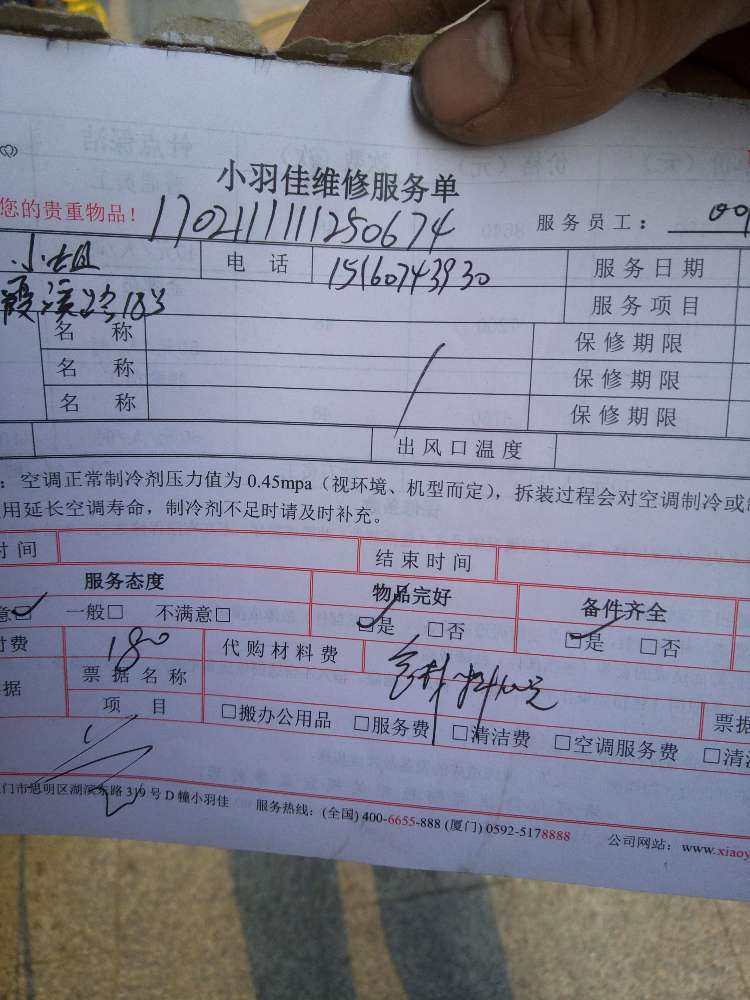 小羽佳维修服务单
您的贵重物品！ 170211111250674 服务员工：
小姐 电话 15160743930 服务日期
霞溪路18号 服务项目
名称 保修期限
名称 保修期限
名称 保修期限
出风口温度
：空调正常制冷剂压力值为 0.45mpa（视环境、机型而定），拆装过程会对空调制冷或
用延长空调寿命，制冷剂不足时请及时补充。
时间 结束时间
服务态度 物品完好 备件齐全
意☑ 一般□ 不满意□ ☑是 □否 ☑是 □否
付费 180 代购材料费
据 票据名称 票据
项目 □搬办公用品 □服务费 □清洁费 □空调服务费 □清
门市思明区湖滨东路 319 号 D 幢小羽佳 服务热线：(全国) 400-6655-888 (厦门) 0592-5178888 公司网站：www.xiaoy